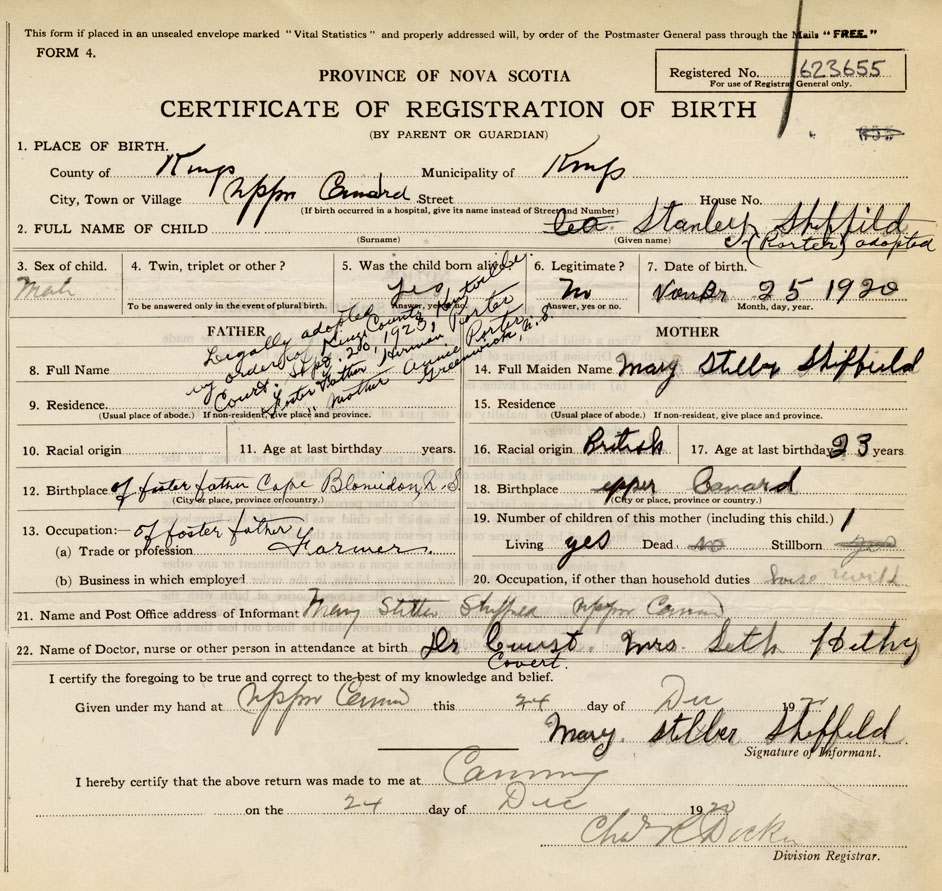 This form if placed in an unsealed envelope marked "Vital Statistics" and properly addressed will, by order of the Postmaster General pass through the Mails "FREE."
FORM 4.
Registered No. 623655
For use of Registrar General only.
PROVINCE OF NOVA SCOTIA
CERTIFICATE OF REGISTRATION OF BIRTH
(BY PARENT OR GUARDIAN)
1. PLACE OF BIRTH.
County of Kings Municipality of Kings
City, Town or Village Uppr Canard Street House No.
(If birth occurred in a hospital, give its name instead of Street and Number)
2. FULL NAME OF CHILD Stanley Sheffild
(Surname) (Given name) (Porter) adopted
3. Sex of child. 4. Twin, triplet or other ? 5. Was the child born alive? 6. Legitimate ? 7. Date of birth.
Yes No 25 1920
To be answered only in the event of plural birth. Answer, yes or no. Answer, yes or no. Month, day, year.
FATHER
Legally adopted
by order of Kings County Kentville
Court, Sept. 20, 1923,
Foster Father Herman Porter
" Mother Annie Porter
Greenwich, N.S.
8. Full Name
9. Residence.
(Usual place of abode.) If non-resident, give place and province.
10. Racial origin 11. Age at last birthday years.
12. Birthplace of foster father Cape Blomidon N.S.
(City or place, province or country.)
13. Occupation:— of foster father
(a) Trade or profession Farmer.
(b) Business in which employed
MOTHER
14. Full Maiden Name Mary Sheffield
15. Residence
(Usual place of abode.) If non-resident, give place and province.
16. Racial origin British 17. Age at last birthday 23 years
18. Birthplace upper Canard
(City or place, province or country.)
19. Number of children of this mother (including this child.) 1
Living yes Dead no Stillborn
20. Occupation, if other than household duties
21. Name and Post Office address of Informant Mary Sheffild
22. Name of Doctor, nurse or other person in attendance at birth Dr Mrs. Seth
Covert.
I certify the foregoing to be true and correct to the best of my knowledge and belief.
Given under my hand at this 24 day of Dec 19
Mary Sheffield
Signature of Informant.
I hereby certify that the above return was made to me at Canning
on the 24 day of Dec 1920
Division Registrar.